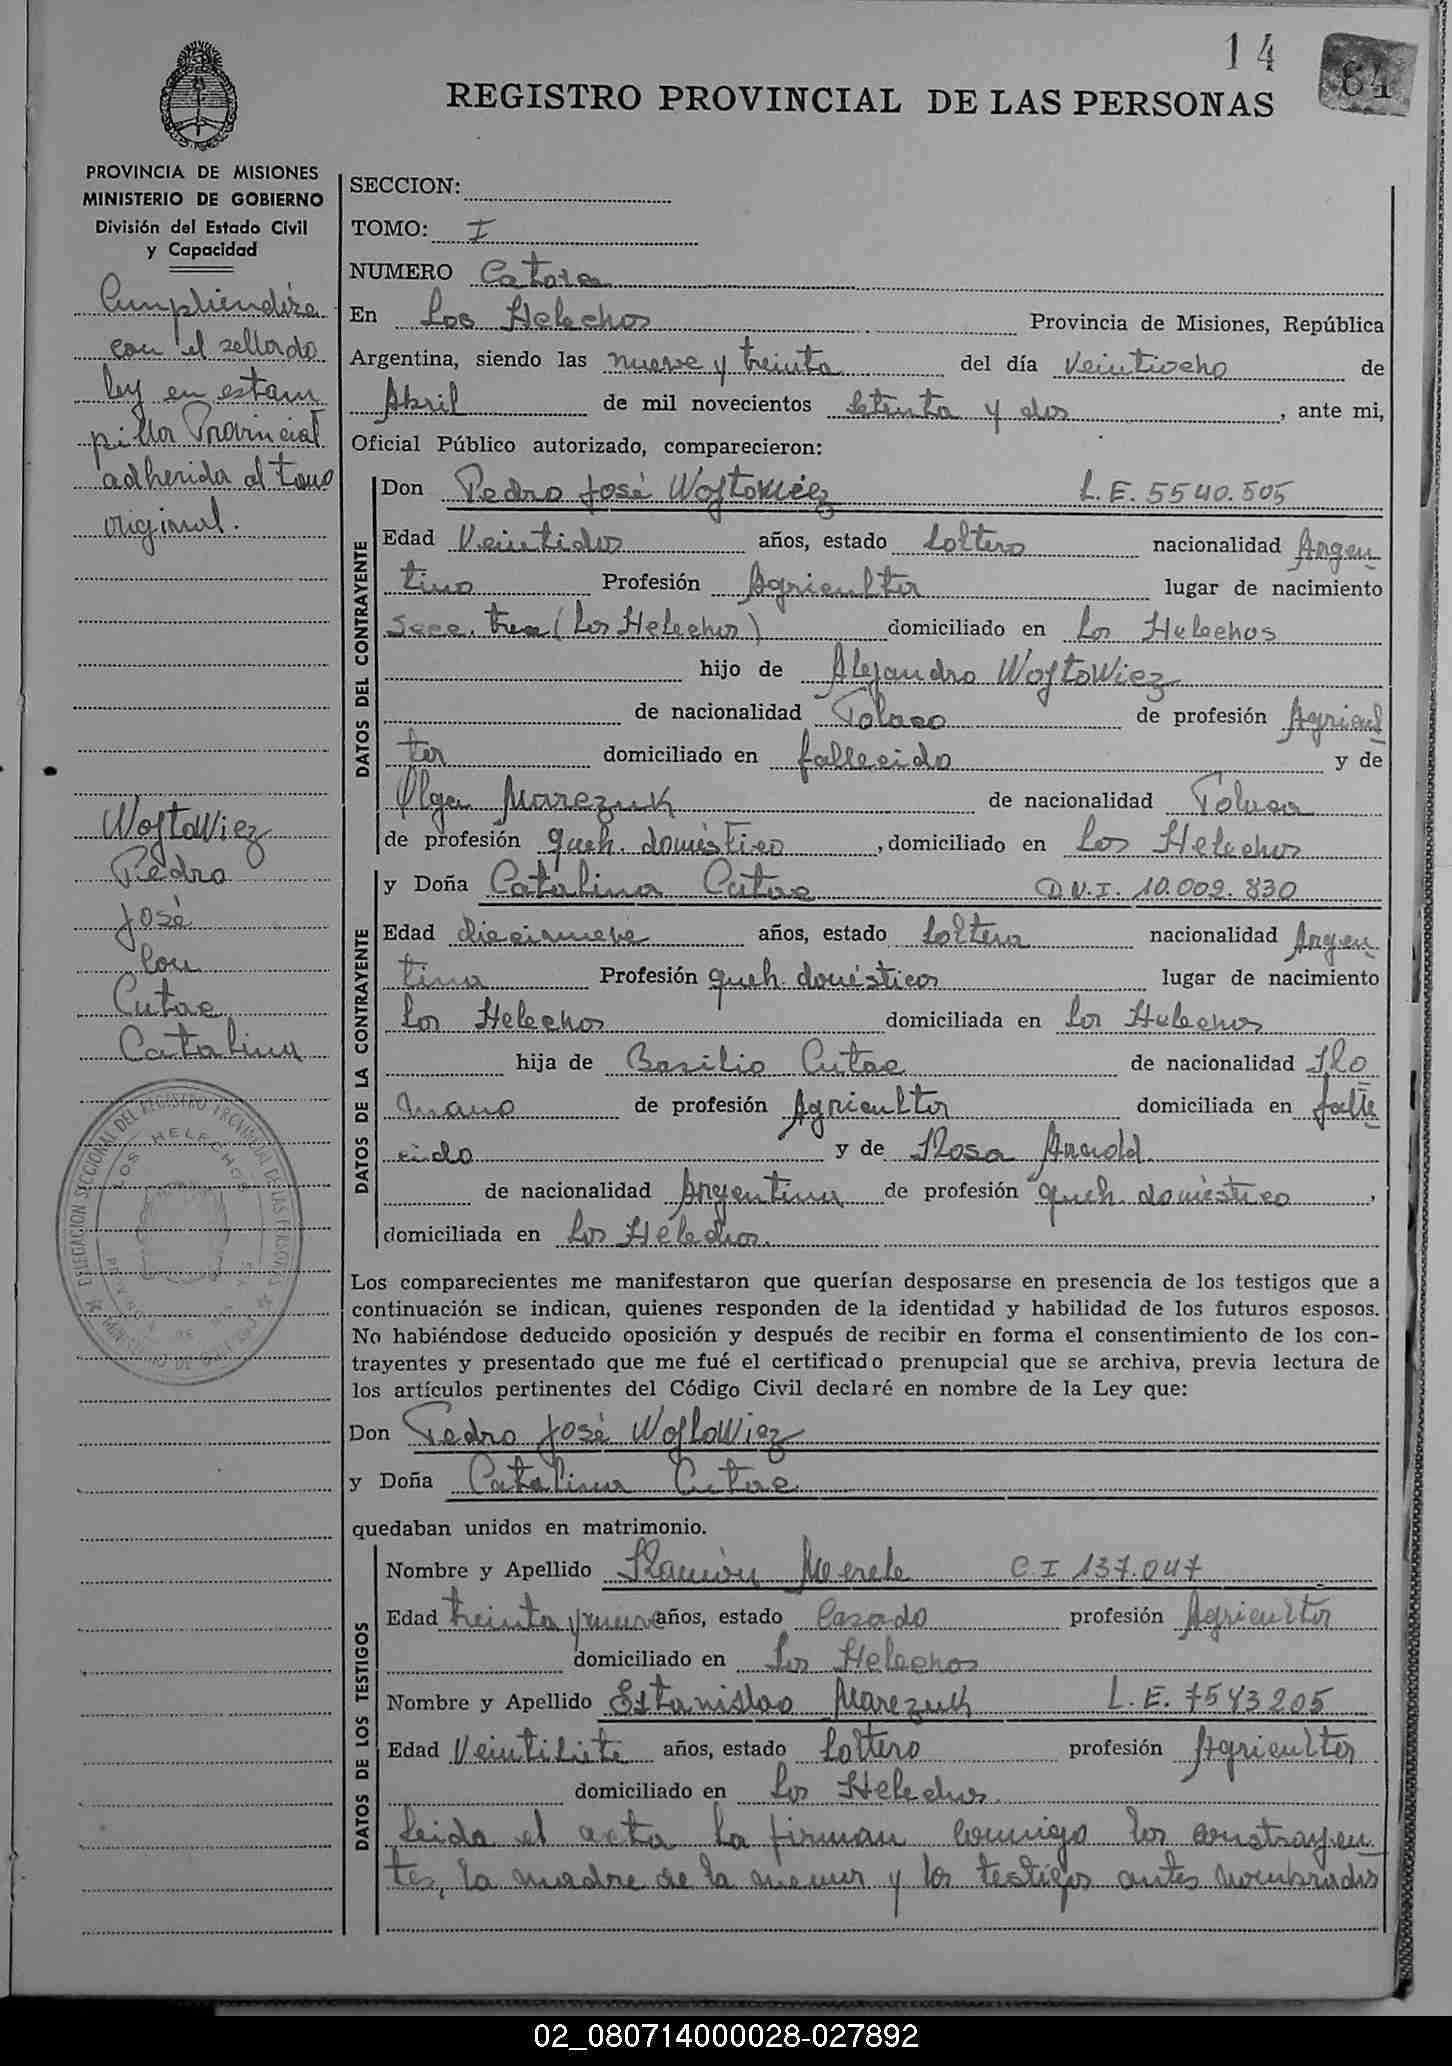 14
64
REGISTRO PROVINCIAL DE LAS PERSONAS
PROVINCIA DE MISIONES
MINISTERIO DE GOBIERNO
División del Estado Civil
y Capacidad
Cumpliendose
con el sellado
ley en estam
pilla Provincial
adherida al tomo
original.
Wojtowiez
Pedro
José
con
Cutae
Catalina
DELEGACION SECCIONAL DEL REGISTRO PROVINCIAL DE LAS PERSONAS
LOS HELECHOS
SECCION:
TOMO: I
NUMERO Catorce
En Los Helechos Provincia de Misiones, República
Argentina, siendo las nueve y treinta del día veintiocho de
Abril de mil novecientos setenta y dos, ante mi,
Oficial Público autorizado, comparecieron:
DATOS DEL CONTRAYENTE
Don Pedro José Wojtowiez L.E. 5540.505
Edad Veintidos años, estado Soltero nacionalidad Argen
tino Profesión Agricultor lugar de nacimiento
Secc. tres (Los Helechos) domiciliado en Los Helechos
hijo de Alejandro Wojtowiez
de nacionalidad Polaco de profesión Agricul
tor domiciliado en fallecido y de
Olga Marezuk de nacionalidad Polaca
de profesión queh. doméstico, domiciliado en Los Helechos
DATOS DE LA CONTRAYENTE
y Doña Catalina Cutae D.N.I. 10.009.830
Edad diecinueve años, estado Soltera nacionalidad Argen
tina Profesión queh. domésticos lugar de nacimiento
Los Helechos domiciliada en Los Helechos
hija de Basilio Cutae de nacionalidad Ro
mano de profesión Agricultor domiciliada en falle
cido y de Rosa Arnold
de nacionalidad Argentina de profesión queh. doméstico,
domiciliada en Los Helechos.
Los comparecientes me manifestaron que querían desposarse en presencia de los testigos que a
continuación se indican, quienes responden de la identidad y habilidad de los futuros esposos.
No habiéndose deducido oposición y después de recibir en forma el consentimiento de los con-
trayentes y presentado que me fué el certificado prenupcial que se archiva, previa lectura de
los artículos pertinentes del Código Civil declaré en nombre de la Ley que:
Don Pedro José Wojtowiez
y Doña Catalina Cutae
quedaban unidos en matrimonio.
DATOS DE LOS TESTIGOS
Nombre y Apellido Ramón Merele C.I 137.047
Edad treinta y nueve años, estado Casado profesión Agricultor
domiciliado en Los Helechos
Nombre y Apellido Estanislao Marezuk L.E. 7543205
Edad Veintisiete años, estado Soltero profesión Agricultor
domiciliado en Los Helechos.
Leida el acta la firman conmigo los contrayen
tes, la madre de la menor y los testigos antes nombrados
02_080714000028-027892